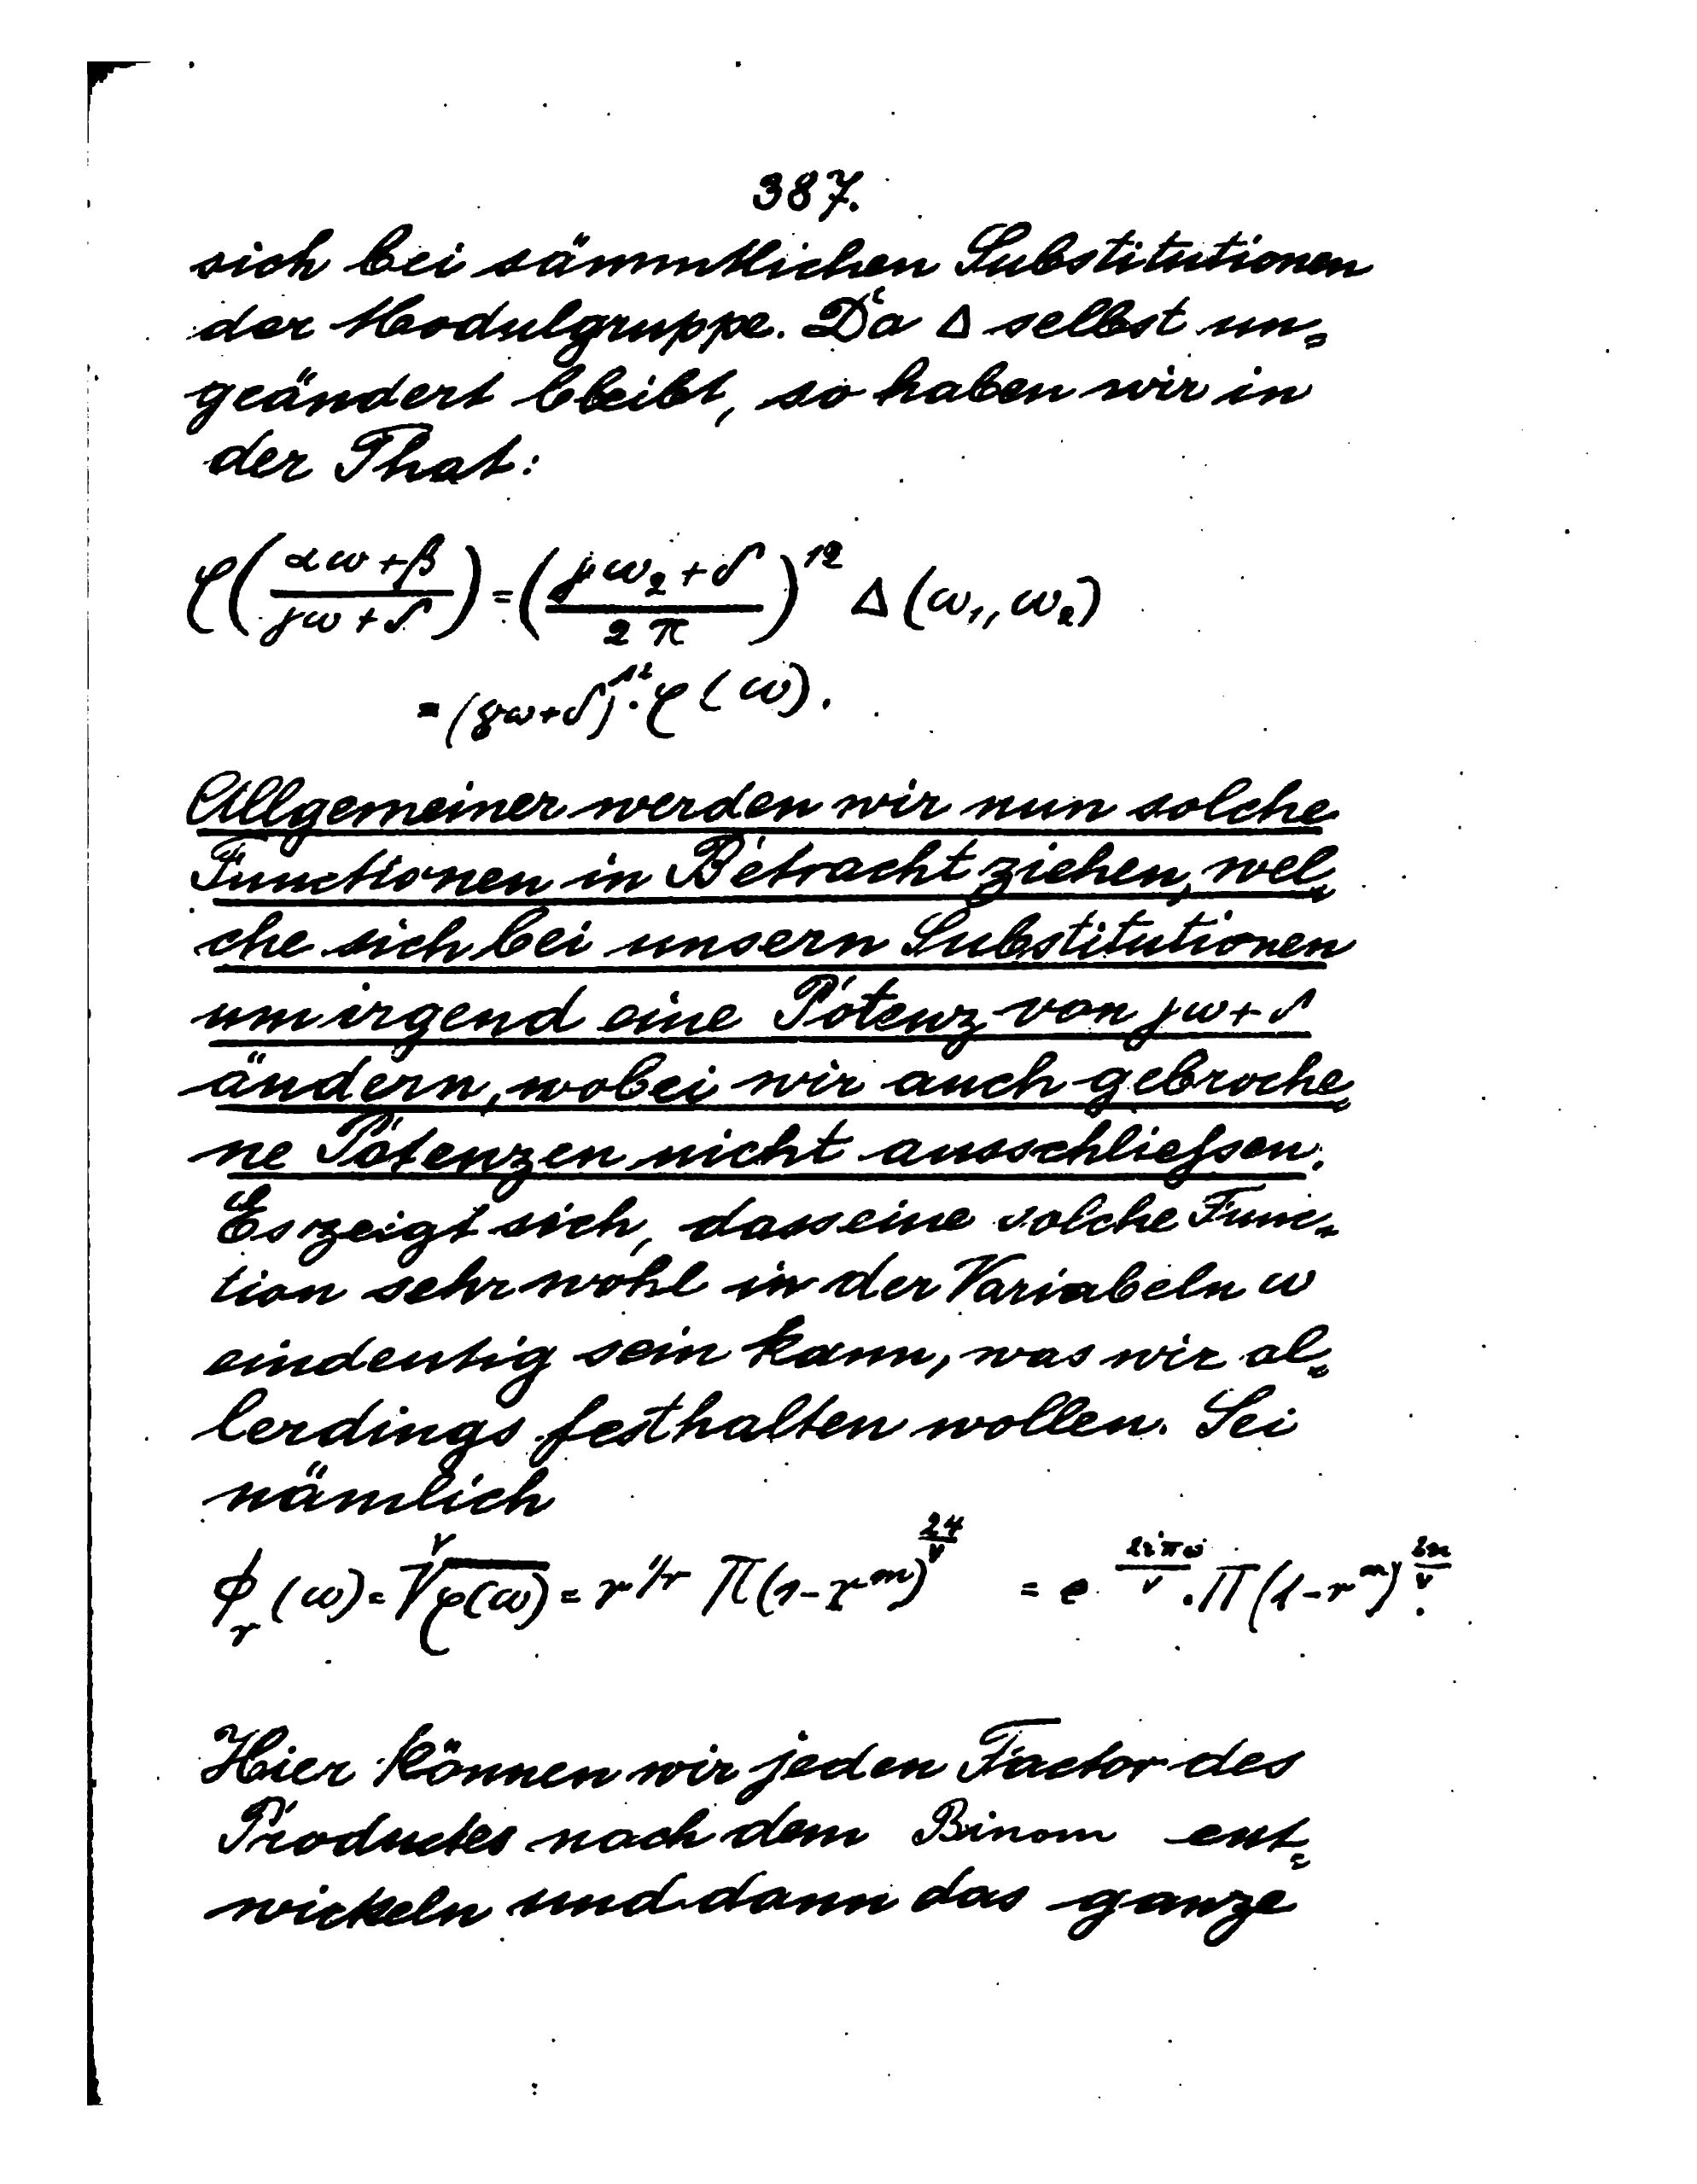 387.
sich bei sämmtlichen Substitutionen
der Modulgruppe. Da Δ selbst un=
geändert bleibt, so haben wir in
der That:
φ((αω+β)/(γω+δ)) = ((γω₂+δ)/(2π))¹² Δ(ω₁, ω₂)
= (γω+δ)¹²·φ(ω).
Allgemeiner werden wir nun solche
Functionen in Betracht ziehen, wel=
che sich bei unsern Substitutionen
um irgend eine Potenz von γω+δ
ändern, wobei wir auch gebroche=
ne Potenzen nicht ausschliefsen.
Es zeigt sich, dass eine solche Func=
tion sehr wohl in der Variabeln ω
eindeutig sein kann, was wir al=
lerdings festhalten wollen. Sei
nämlich
ϕ_r(ω) = ʳ√φ(ω) = r^{1/r} Π(1-r^m)^{24/v} = e^{2iπω/v}·Π(1-r^m)^{24/v}.
Hier können wir jeden Factor des
Productes nach dem Binom ent=
wickeln und dann das ganze